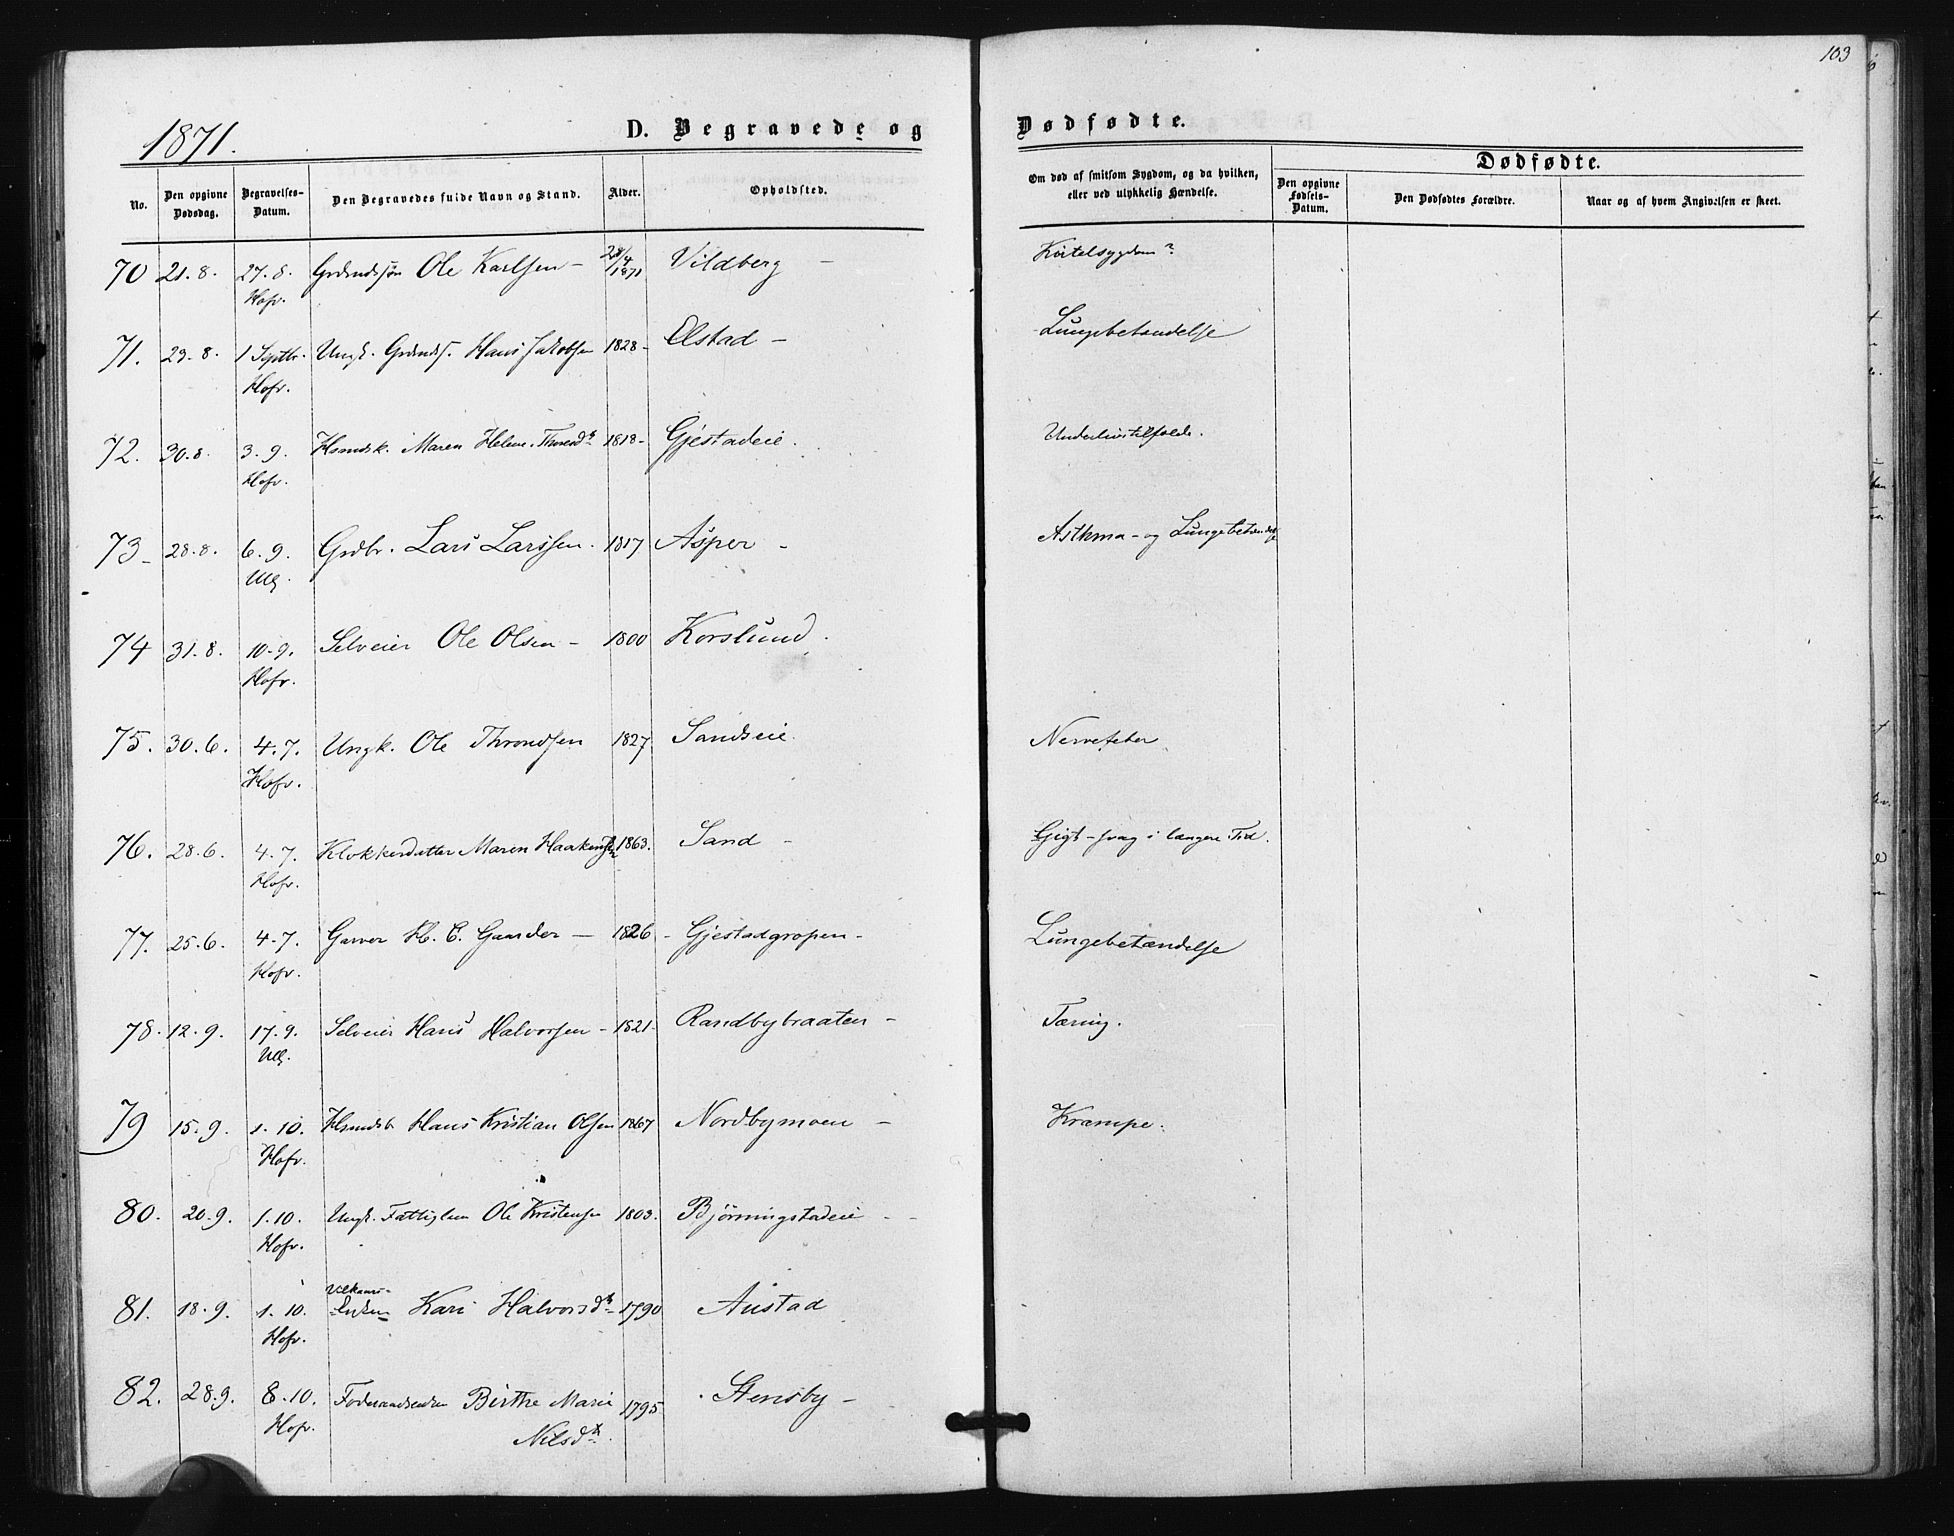 103
1871.
D. Begravede og Dødfødte.
Dødfødte.
No. Den opgivne Dødsdag. Begravelses-Datum. Den Begravedes fulde Navn og Stand. Alder. Opholdsted. Om død af smitsom Sygdom, og da hvilken, eller ved ulykkelig Hændelse. Den opgivne Fødsels-Datum. Den Dødfødtes Forældre. Naar og af hvem Angivelsen er skeet.
70 21.8. 27.8. Grdmdssøn Ole Karlsen - 28/4 1871 Vildberg - Kirtelsygdom?
Hofv.
71. 29.8. 1 Septbr. Ungk. Grdmds. Hans Jakobsen 1828- Olstad - Lungebetændelse
Hofv.
72. 30.8. 3.9. Hsmdsk. Maren Helene Thoresdtr 1818- Gjestadeie. Underlivstilfælde.
Hofv.
73- 28.8. 6.9. Grdbr. Lars Larssen. 1817 Asper - Asthma- og Lungebetændelse
Ull.
74 31.8. 10.9. Selveier Ole Olsen - 1800 Korslund.
Hofv.
75. 30.6. 4.7. Ungk. Ole Throndsen 1827 Sandseie. Nervefeber
Hofv.
76. 28.6. 4.7. Klokkerdatter Maren 1863. Sand - Gigt - svag i længere Tid.
Hofv.
77. 25.6. 4.7. Garver H. C. Gaarder - 1826 - Gjestadgropen - Lungebetændelse
Hofv.
78. 12.9. 17.9. Selveier Hans Halvorsen - 1821. Randbybraaten - Tæring.
Ull.
79 15.9. 1.10. Hsmdsb Hans Kristian Olsen 1867 Nordbymoen - Krampe.
Hofv.
80. 20.9. 1.10. Ungk. Fattiglem Ole Kristensen 1803. Bjørningstadeie - -
Hofv.
81. 18.9. 1.10. Vilkaars-Enken Kari Halvorsdtr - 1790 Austad
Hofv.
82. 28.9. 8.10. Birthe Marie 1795 Stensby -
Hofv. Nilsdtr.